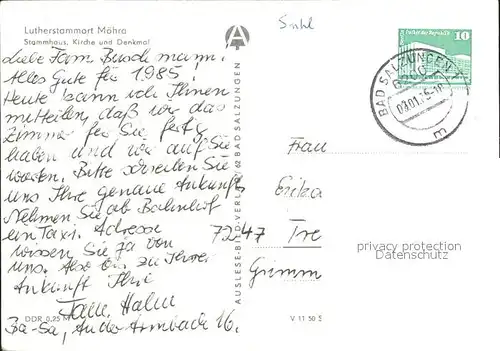 Lutherstammort Möhra
Stammhaus, Kirche und Denkmal
Liebe Fam. Buschmann!
Alles Gute für 1985.
Heute kann ich Ihnen
mitteilen, daß wir das
Zimmer für Sie fertig
haben und wir auf Sie
warten. Bitte schreiben Sie
uns Ihre genaue Ankunft.
Nehmen Sie ab Bahnhof
ein Taxi. Adresse
wissen Sie ja von
uns. Also bis zu Ihrer
Ankunft Ihre
Fam. Hahn
Ba-Sa, An der Armbach 16.
DDR 0,25 M
AUSLESE-BILD-VERLAG 62 BAD SALZUNGEN
V 11 50 S
Suhl
10
BAD SALZUNGEN 1
m
Frau
Erika
7247 Tre
Grimm
privacy protection
Datenschutz